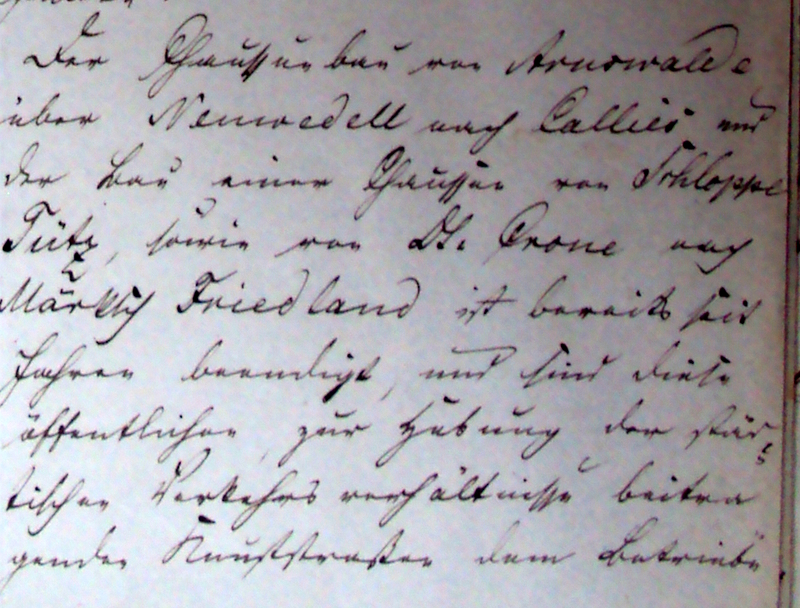 Der Chausseebau von Arnswalde
über Neuwedell nach Callies und
der Bau einer Chaussee von Schloppe
Tütz, sowie von Dt. Crone nach
Märkisch Friedland ist bereits seit
Jahren beendigt, und sind diese
öffentlichen, zur Hebung der städ-
tischen Verkehrsverhältnisse beitra
genden Kunststraßen dem Betriebe